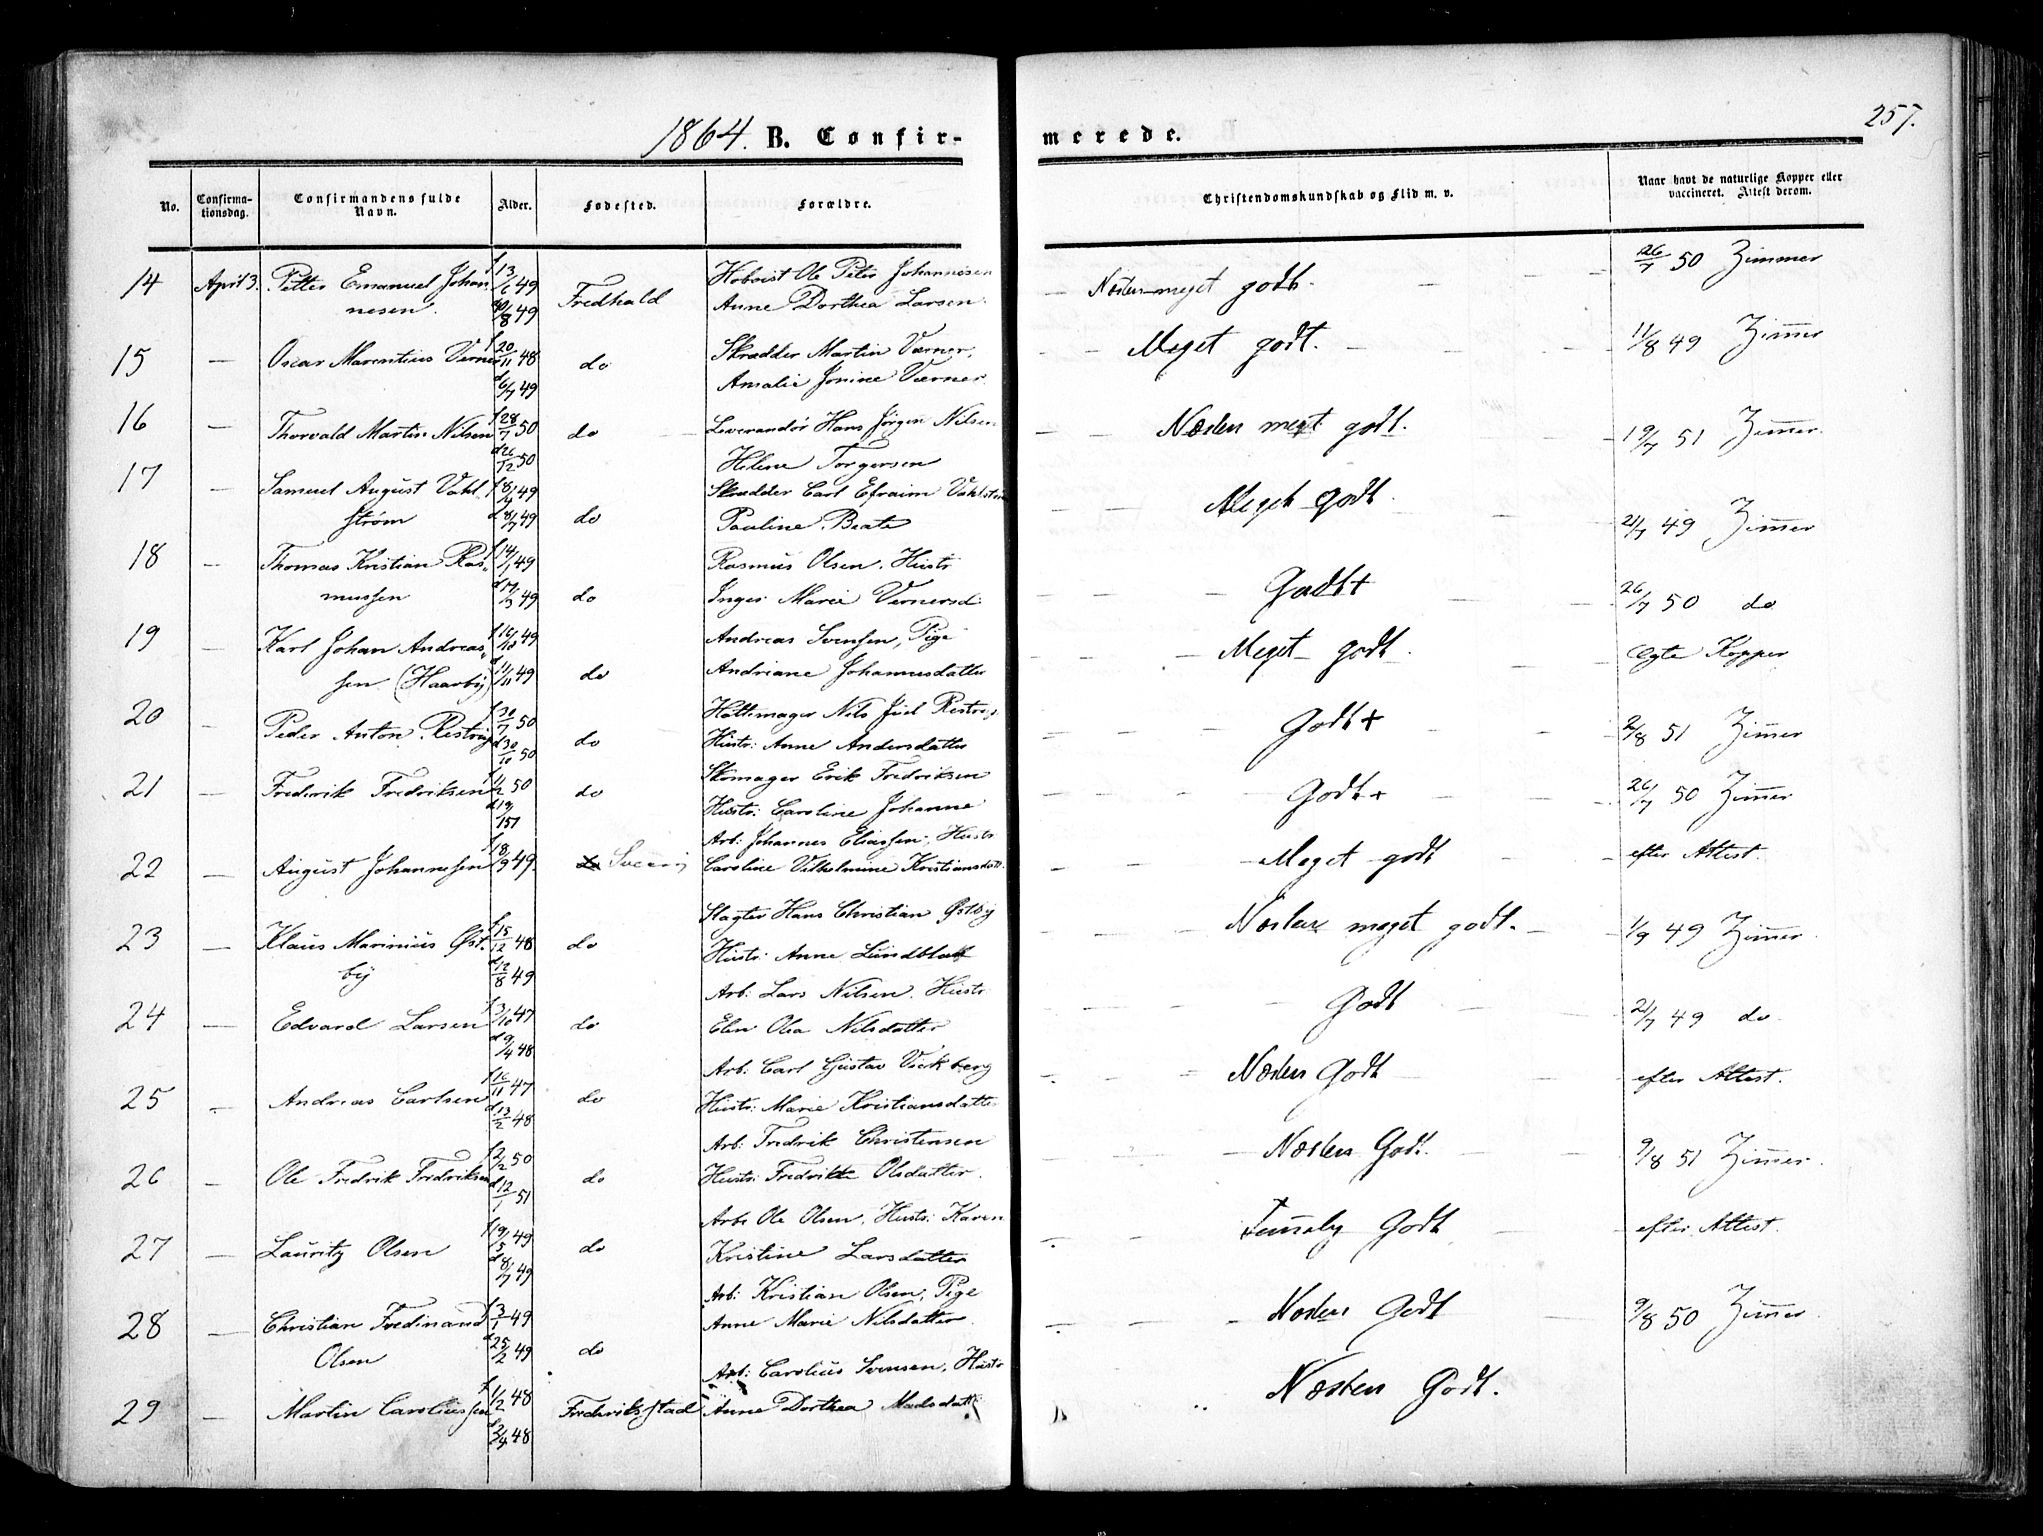 1864. B. Confir-
merede.
257.
No.
Confirma-
tionsdag.
Confirmandens fulde
Navn.
Alder.
Fødested.
Forældre.
Christendomskundskab og Flid m. v.
Naar havt de naturlige Kopper eller
vaccineret. Attest derom.
14 April 3. Petter Emanuel Johan- f 13/6 49 Hoboist Ole Peter Johannesen
nesen. /8 49 Fredhald Anne Dorthea Larsen. Næsten meget godt. 26/7 50 Zimmer
15 — Oscar Marentius Værner f 20/11 48 do Skrædder Martin Værner, Meget godt. 11/8 49 Zimmer
d 6/7 49 Amalie Jonine Værner
16 — Thorvald Martin Nilsen f 28/7 50 do Leverandør Hans Jørgen Nilsen Næsten meget godt. 19/7 51 Zimmer.
d 26/12 50 Helene Torgersen
17 — Samuel August Vahl- f 8/4 49 Skrædder Carl Efraim Vahlstrøm Meget godt.
strøm d 8/7 49 do Pauline Beate 21/7 49 Zimmer
18 — Thomas Kristian Ras- f 14/1 49 Rasmus Olsen. Hustr.
mussen d 17/3 49 do Inger Marie Vernersd. Godt+ 26/7 50 do
19 — Karl Johan Andreas- f 16/10 49 Andreas Svensen, Pige Meget godt. Ægte Kopper
sen (Haarby) d 11/11 49 do Andriane Johannesdatter
20 — Peder Anton Restrup f 30/7 50 Hattemager Nils Juel Restrup. Godt+ 2/8 51 Zimmer
d 30/10 50 do Hustr: Anne Andersdatter
21 — Frederik Fredriksen f /2 50 do Skomager Erik Fredriksen Godt+ 26/7 50 Zimmer
d 19/1 51 Hustr: Caroline Johanne
Arb: Johannes Eliassen, Hustr
22 — August Johannesen f 8/9 49. do Sverrig Caroline Vilhelmine Kristiansdatt. Meget godt efter Attest.
Slagter Hans Christian Østby
23 — Klaus Marinius Øst- f 15/12 48 do Hustr: Anne Lundblad Næsten meget godt. 1/9 49 Zimmer.
by d 12/8 49
Arb: Lars Nilsen. Hustr.
24 — Edvard Larsen f 3/10 47 do Elen Olea Nilsdatter Godt 21/7 49 do.
d 9/4 48
Arb: Carl Gustav Vickberg
25 — Andreas Carlsen f 16/11 47 do Hustr: Marie Kristiansdatter Næsten Godt efter Attest.
d 13/2 48
Arb: Fredrik Christensen
26 Ole Fredrik Fredriksen f 2/2 50 do Hustr: Fredrikke Olsdatter. Næsten Godt. 9/8 51 Zimmer.
d 12/1 51
Arb: Ole Olsen, Hustr: Karen
27 — Lauritz Olsen f 19/5 49 do Kristine Larsdatter Temmelig Godt efter Attest.
d 8/7 49
Arb: Kristian Olsen, Pige
28 — Christian Ferdinand f 3/1 49 Anne Marie Nilsdatter. Næsten Godt 9/8 50 Zimmer.
Olsen d 25/2 49 do
Arb: Carolius Svensen, Hustr
29 — Martin Caroliussen f 1/2 48 Frederiksstad Anne Dorthea Madsdatt: Næsten Godt.
d 2/4 48